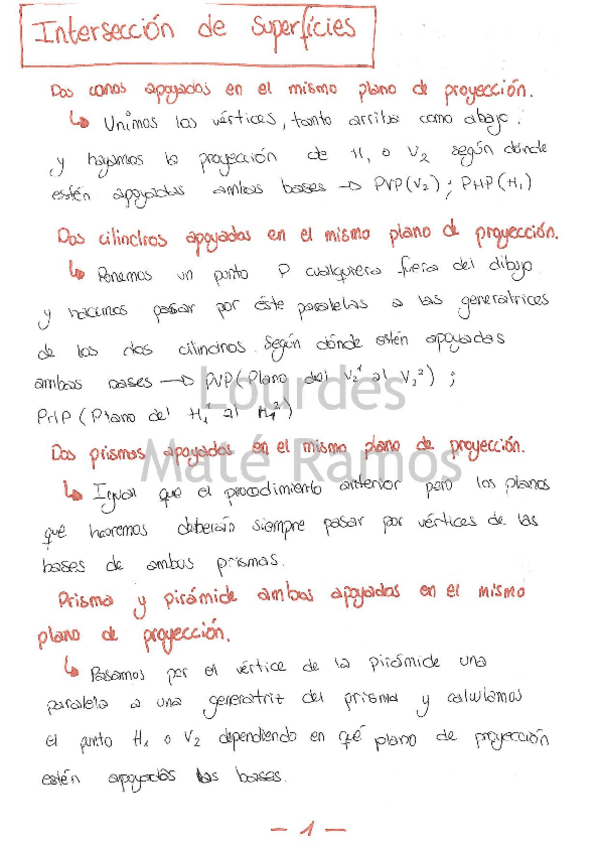 Intersección de Superficies
Dos conos apoyados en el mismo plano de proyección.
↳ Unimos los vértices, tanto arriba como abajo.
y hayamos la proyección de H₁ o V₂ según dónde
estén apoyadas ambas bases → PVP(V₂); PHP(H₁)
Dos cilindros apoyados en el mismo plano de proyección.
↳ Ponemos un punto P cualquiera fuera del dibujo
y hacemos pasar por éste paralelas a las generatrices
de los dos cilindros. Según dónde estén apoyadas
ambas bases → PVP(Plano del V₂¹ al V₂²);
PHP (Plano del H₁¹ al H₁²)
Lourdes
Maté Ramos
Dos prismas apoyados en el mismo plano de proyección.
↳ Igual que el procedimiento anterior pero los planos
que haremos deberán siempre pasar por vértices de las
bases de ambos prismas.
Prisma y pirámide ambos apoyados en el mismo
plano de proyección.
↳ Pasamos por el vértice de la pirámide una
paralela a una generatriz del prisma y calculamos
el punto H₁ o V₂ dependiendo en qué plano de proyección
estén apoyadas las bases.
- 1 -